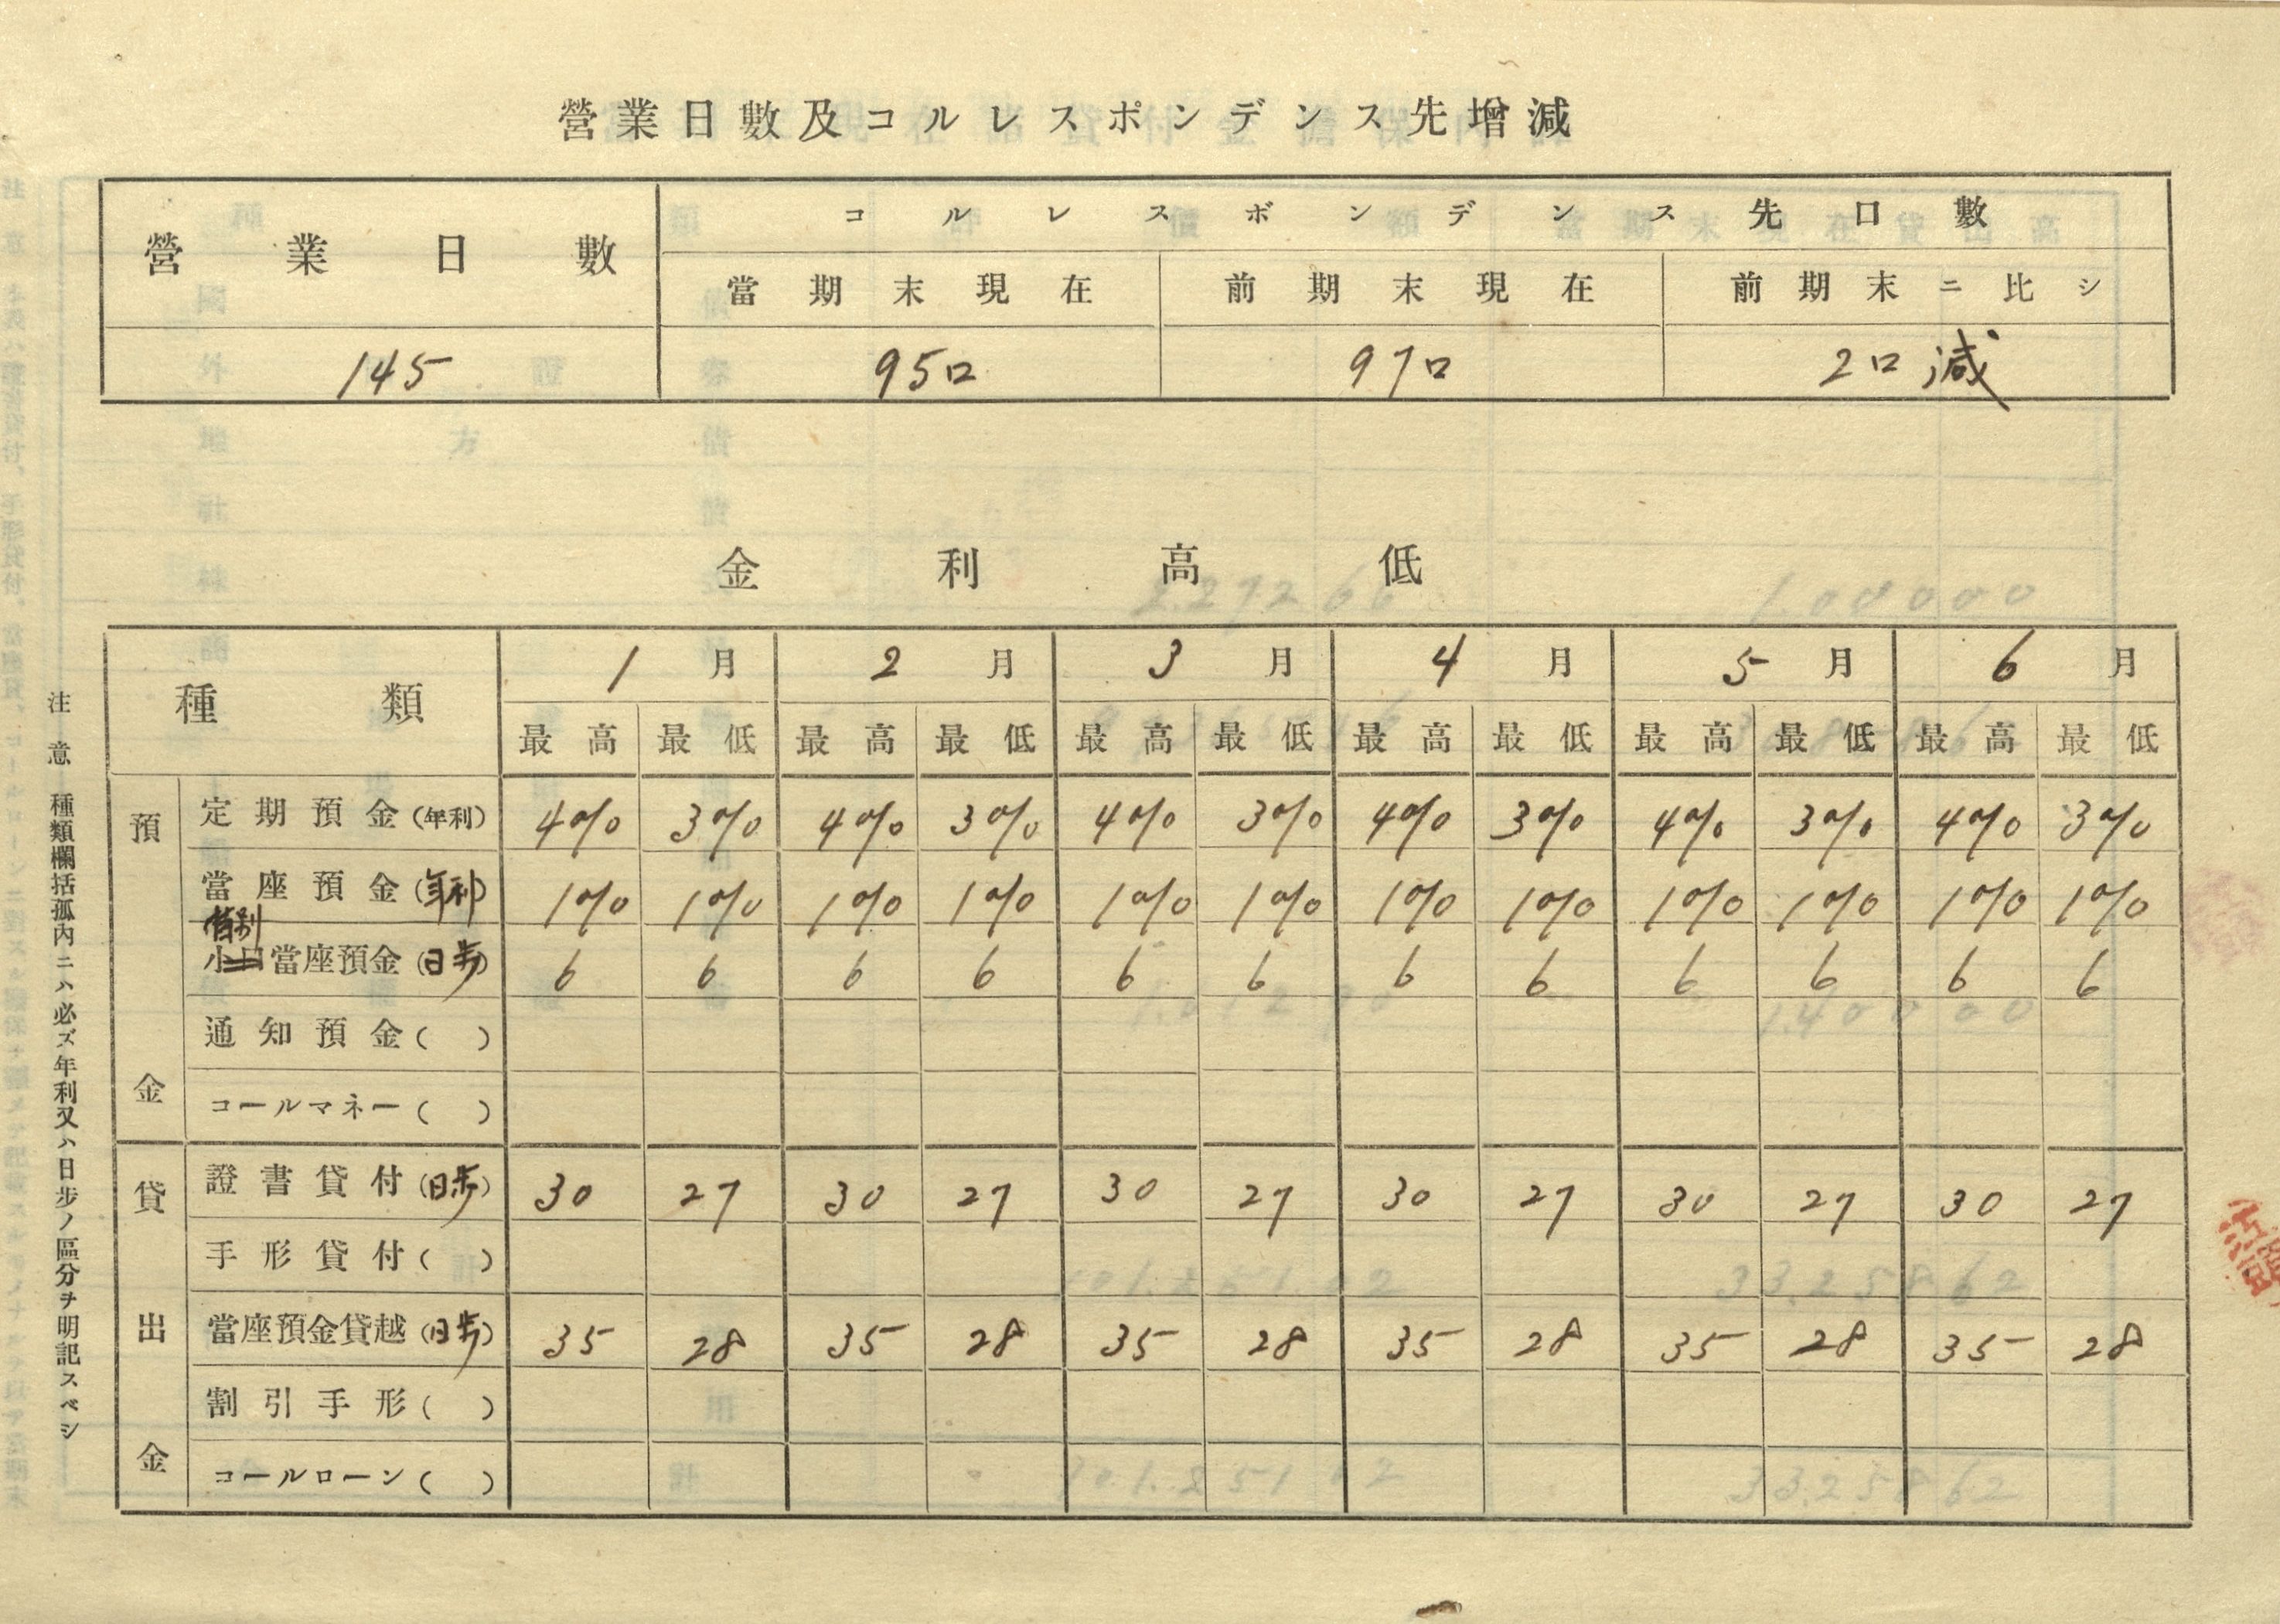 營業日數及コルレスポンデンス先增減
營業日數
コルレスポンデンス先口數
當期末現在 前期末現在 前期末ニ比シ
145 95口 97口 2口減
金利高低
種類 1月 2月 3月 4月 5月 6月
最高 最低 最高 最低 最高 最低 最高 最低 最高 最低 最高 最低
預金
定期預金(年利) 4% 3% 4% 3% 4% 3% 4% 3% 4% 3% 4% 3%
當座預金(年利) 1% 1% 1% 1% 1% 1% 1% 1% 1% 1% 1% 1%
特別
小口當座預金(日歩) 6 6 6 6 6 6 6 6 6 6 6 6
通知預金( )
コールマネー( )
貸出金
證書貸付(日歩) 30 27 30 27 30 27 30 27 30 27 30 27
手形貸付( )
當座預金貸越(日歩) 35 28 35 28 35 28 35 28 35 28 35 28
割引手形( )
コールローン( )
注意 種類欄括孤內ニハ必ズ年利又ハ日步ノ區分ヲ明記スベシ